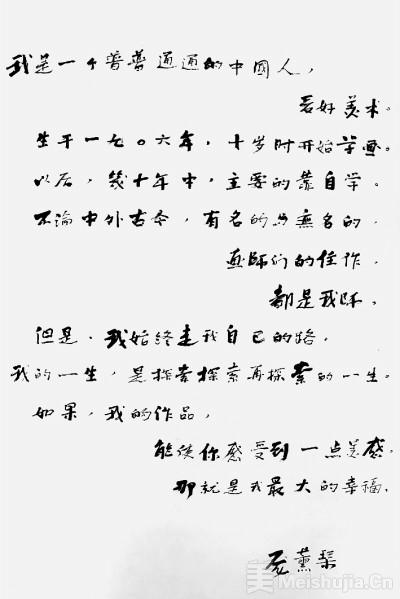 我是一个普普通通的中國人，
爱好美术。
生于一九〇六年，十岁时开始学画。
以后，幾十年中，主要的靠自学。
不論中外古今，有名的与無名的，
画師们的佳作，
都是我师。
但是，我始终走我自己的路。
我的一生，是探索探索再探索的一生。
如果，我的作品，
能使你感受到一点美感，
那就是我最大的幸福。
庞薰琹
美 Meishujia.Cn